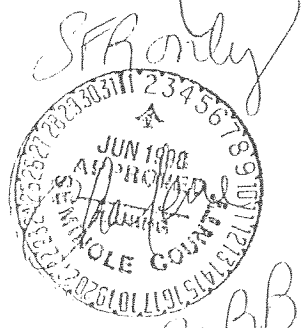 SFR only
1 2 3 4 5 6 7 8 9 10 11 12 13 14 15 16 17 18 19 20 21 22 23 24 25 26 27 28 29 30 31
JUN
APPROVED
Planning
SEMINOLE COUNTY
BB